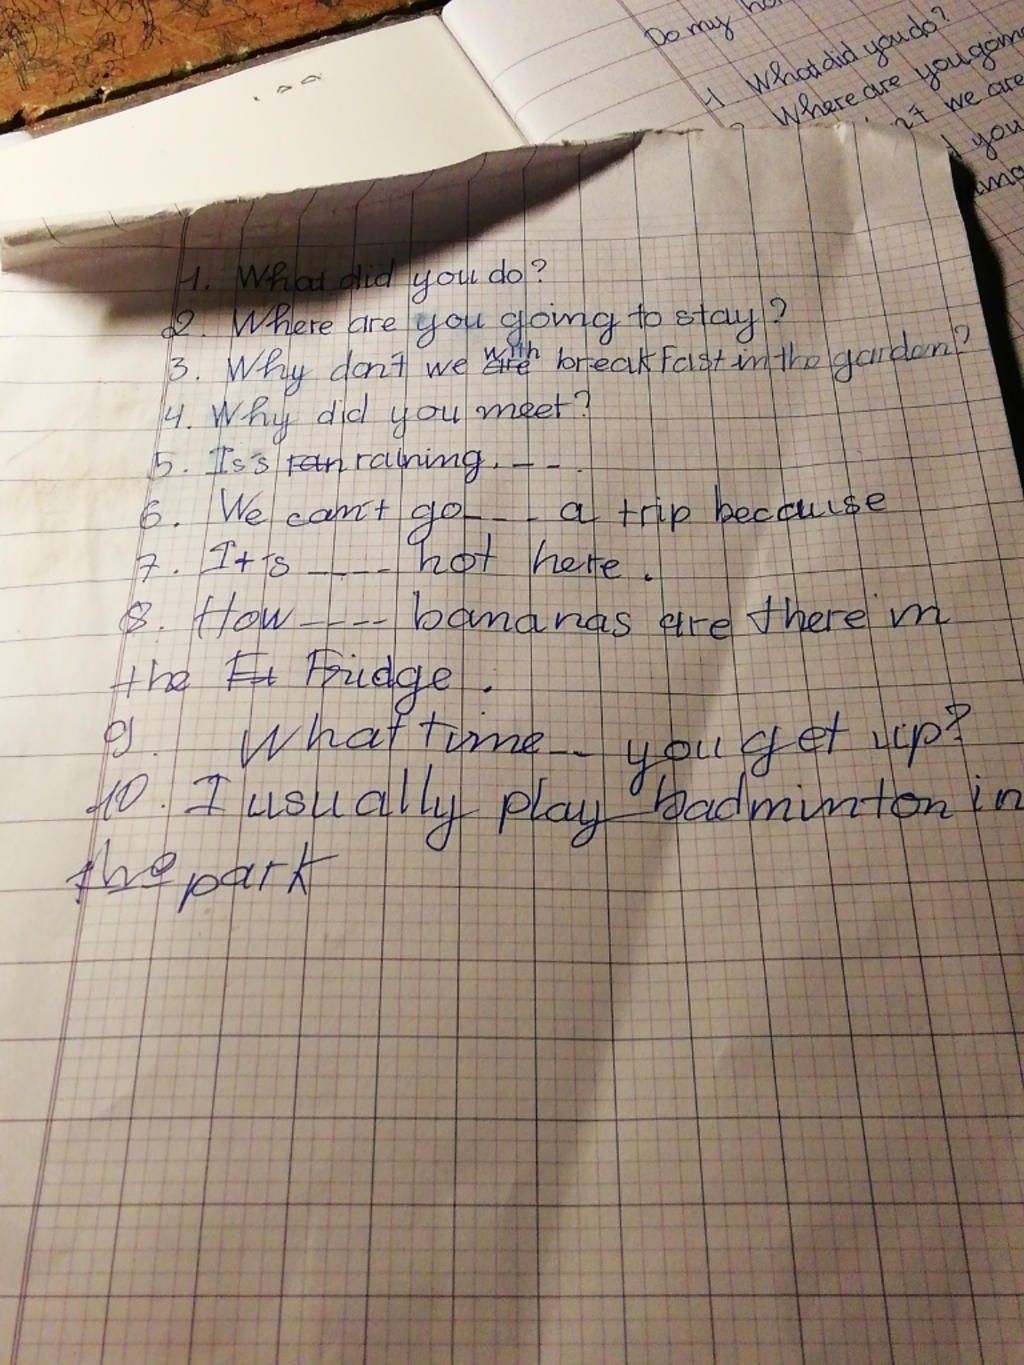 Do my
1 What did you do?
Where are you going
we are
you
1. What did you do?
2. Where are you going to stay?
3. Why don't we are with breakfast in the garden?
4. Why did you meet?
5. Is's ran raining. - - .
6. We can't go ---- a trip because
7. It is ---- hot here.
8. How ---- bananas are there in
the Fr Fridge.
9. What time -- you get up?
10. I usually play badminton in
the park